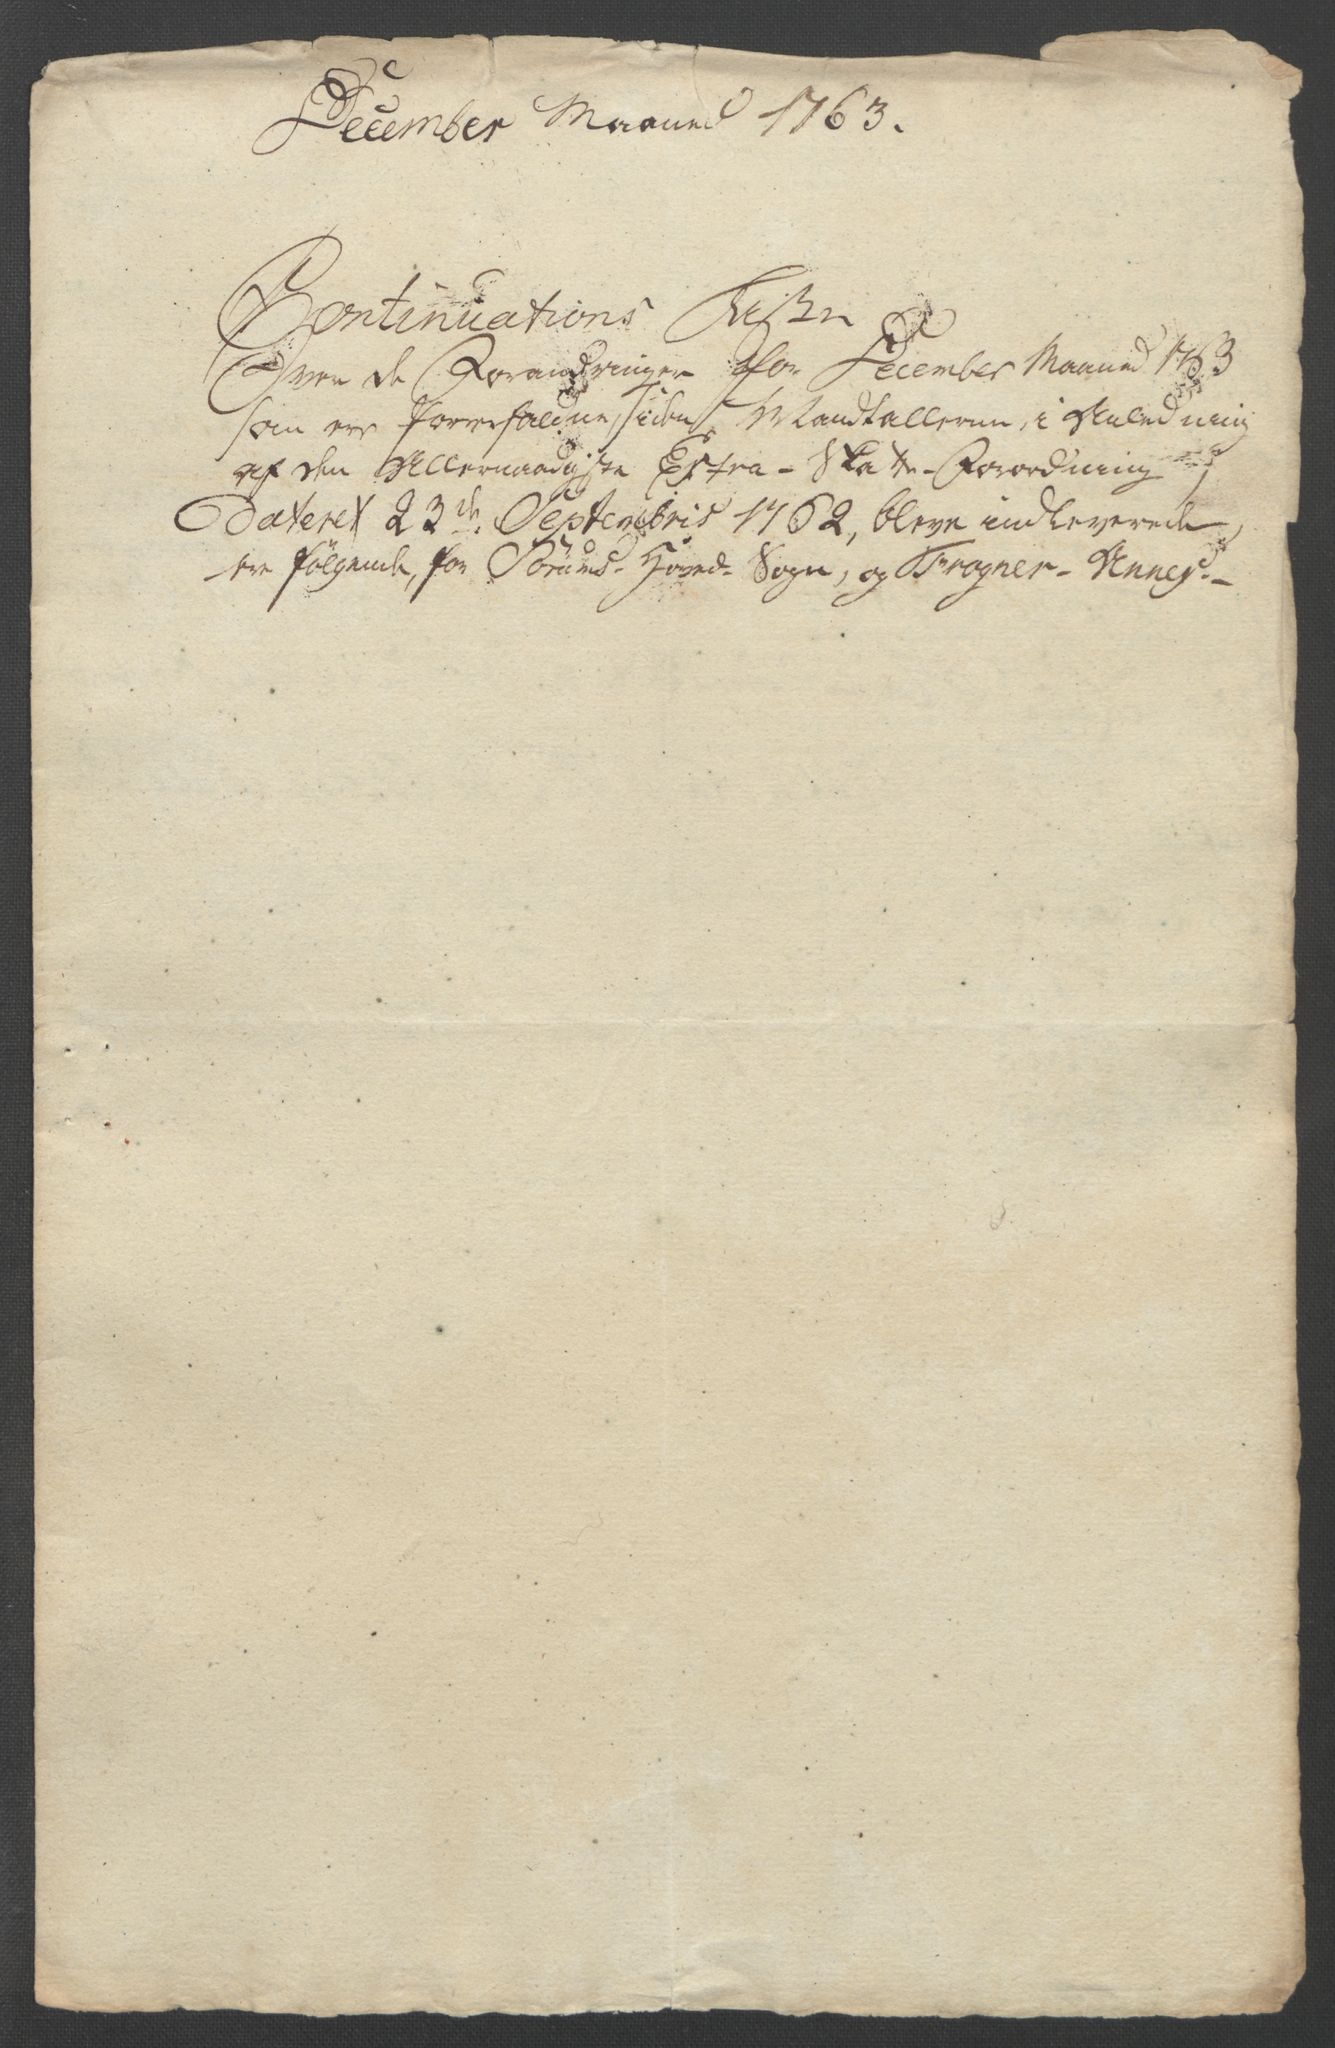 December Maaned 1763.
Continuations Liste
Over de Forandringer for December Maaned 1763
som ere forrefaldne, siden Mandtallerne, i Anledning
af den Allernaadigste Extra-Skatte-Forordning
Dateret 23de Septembris 1762, bleve indleverede,
ere følgende, for Sørums-Hoved-Sogn, og Frogner-Annex.